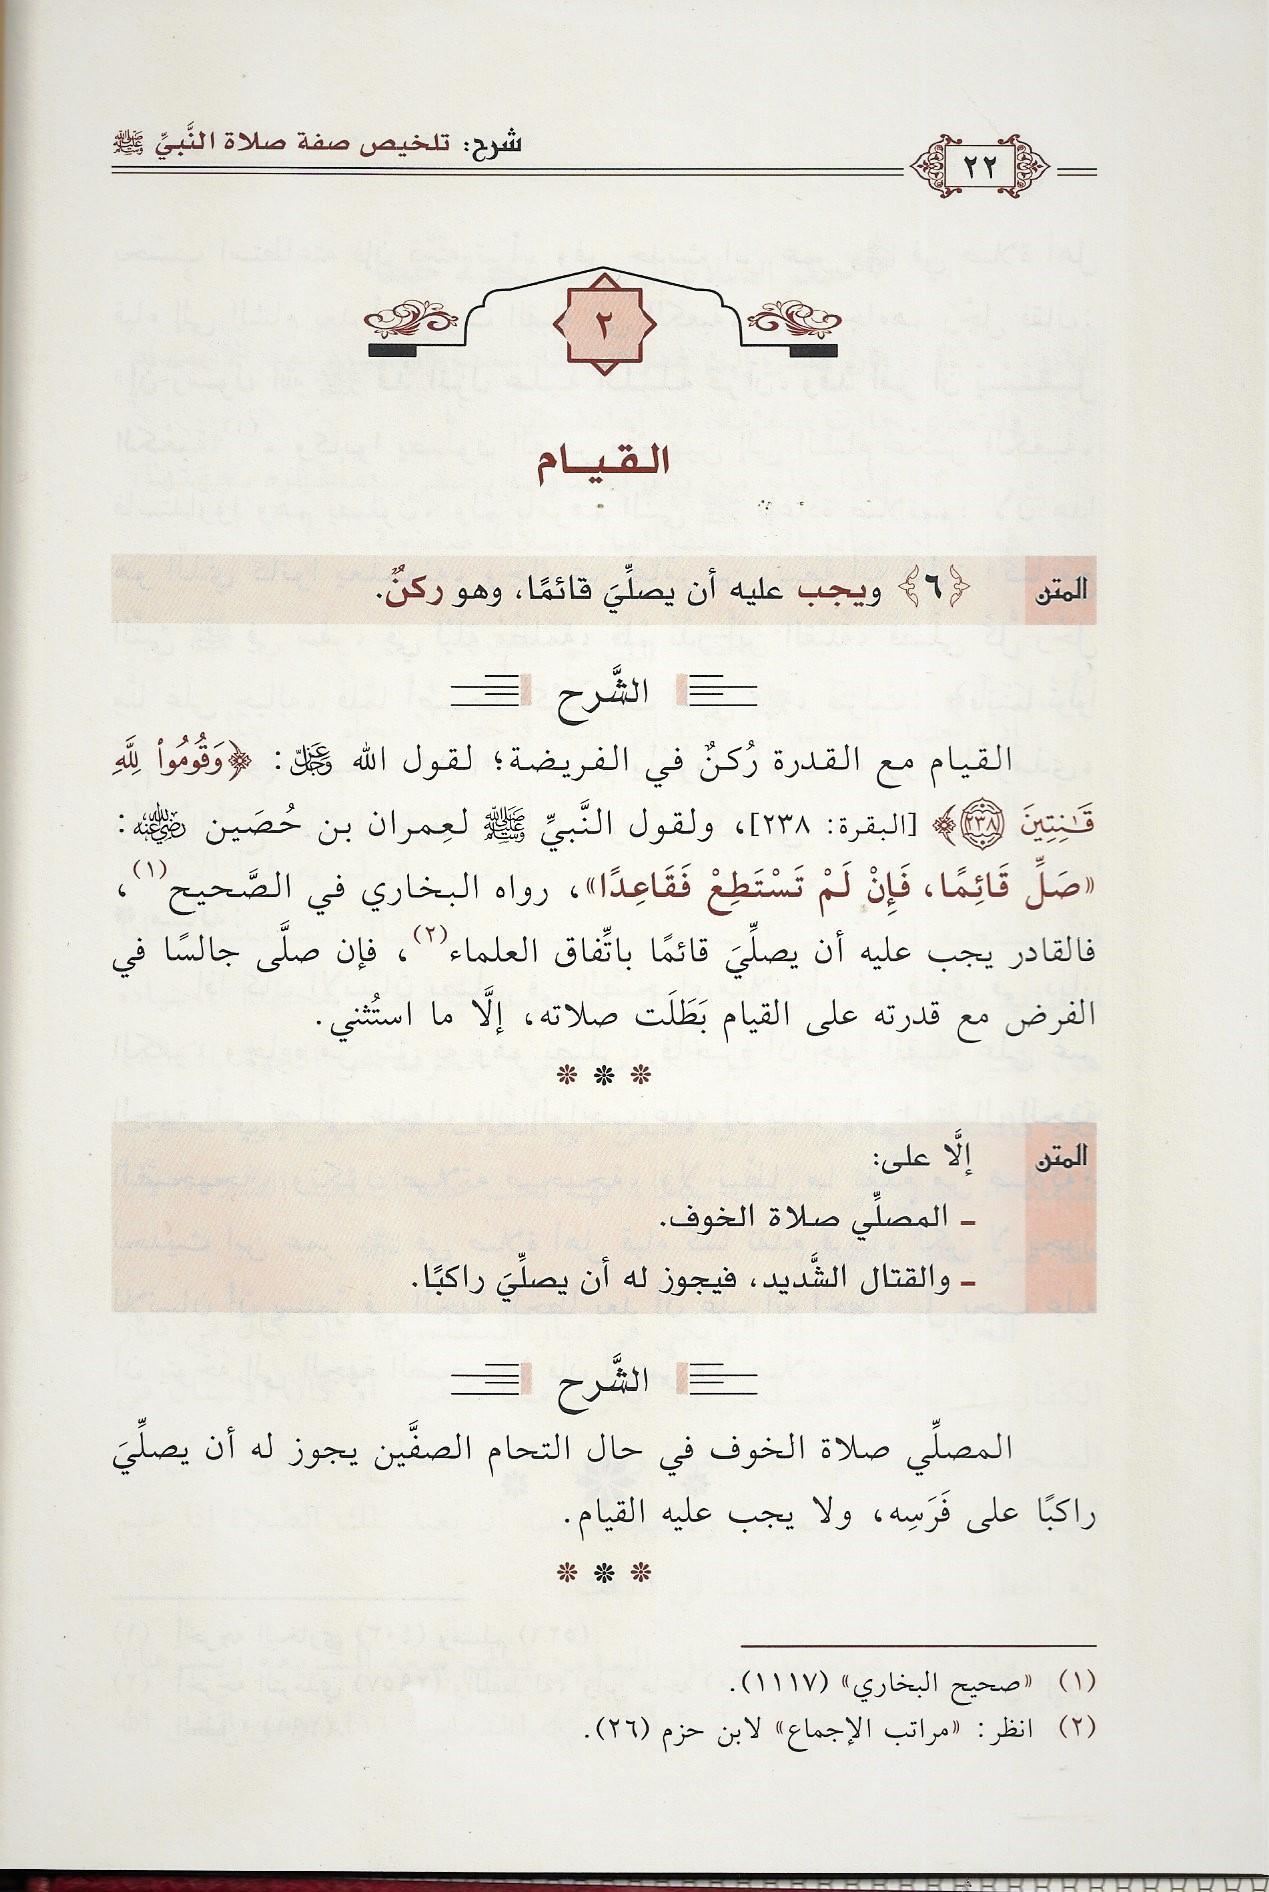 ٢٢
شرح: تلخيص صفة صلاة النَّبيِّ ﷺ
٢
القيام
المتن
﴿٦﴾ ويجب عليه أن يصلِّيَ قائمًا، وهو ركنٌ.
الشَّرح
القيام مع القدرة رُكنٌ في الفريضة؛ لقول الله عَزَّوَجَلَّ: ﴿وَقُومُواْ لِلَّهِ
قَٰنِتِينَ ٢٣٨﴾ [البقرة: ٢٣٨]، ولقول النَّبيِّ ﷺ لعِمران بن حُصَين رَضِيَ اللَّهُ عَنْهُ:
«صَلِّ قَائِمًا، فَإِنْ لَمْ تَسْتَطِعْ فَقَاعِدًا»، رواه البخاري في الصَّحيح(١)،
فالقادر يجب عليه أن يصلِّيَ قائمًا باتِّفاق العلماء(٢)، فإن صلَّى جالسًا في
الفرض مع قدرته على القيام بَطَلَت صلاته، إلَّا ما استُثني.
المتن
إلَّا على:
- المصلِّي صلاة الخوف.
- والقتال الشَّديد، فيجوز له أن يصلِّيَ راكبًا.
الشَّرح
المصلِّي صلاة الخوف في حال التحام الصفَّين يجوز له أن يصلِّيَ
راكبًا على فَرَسِه، ولا يجب عليه القيام.
(١) «صحيح البخاري» (١١١٧).
(٢) انظر: «مراتب الإجماع» لابن حزم (٢٦).